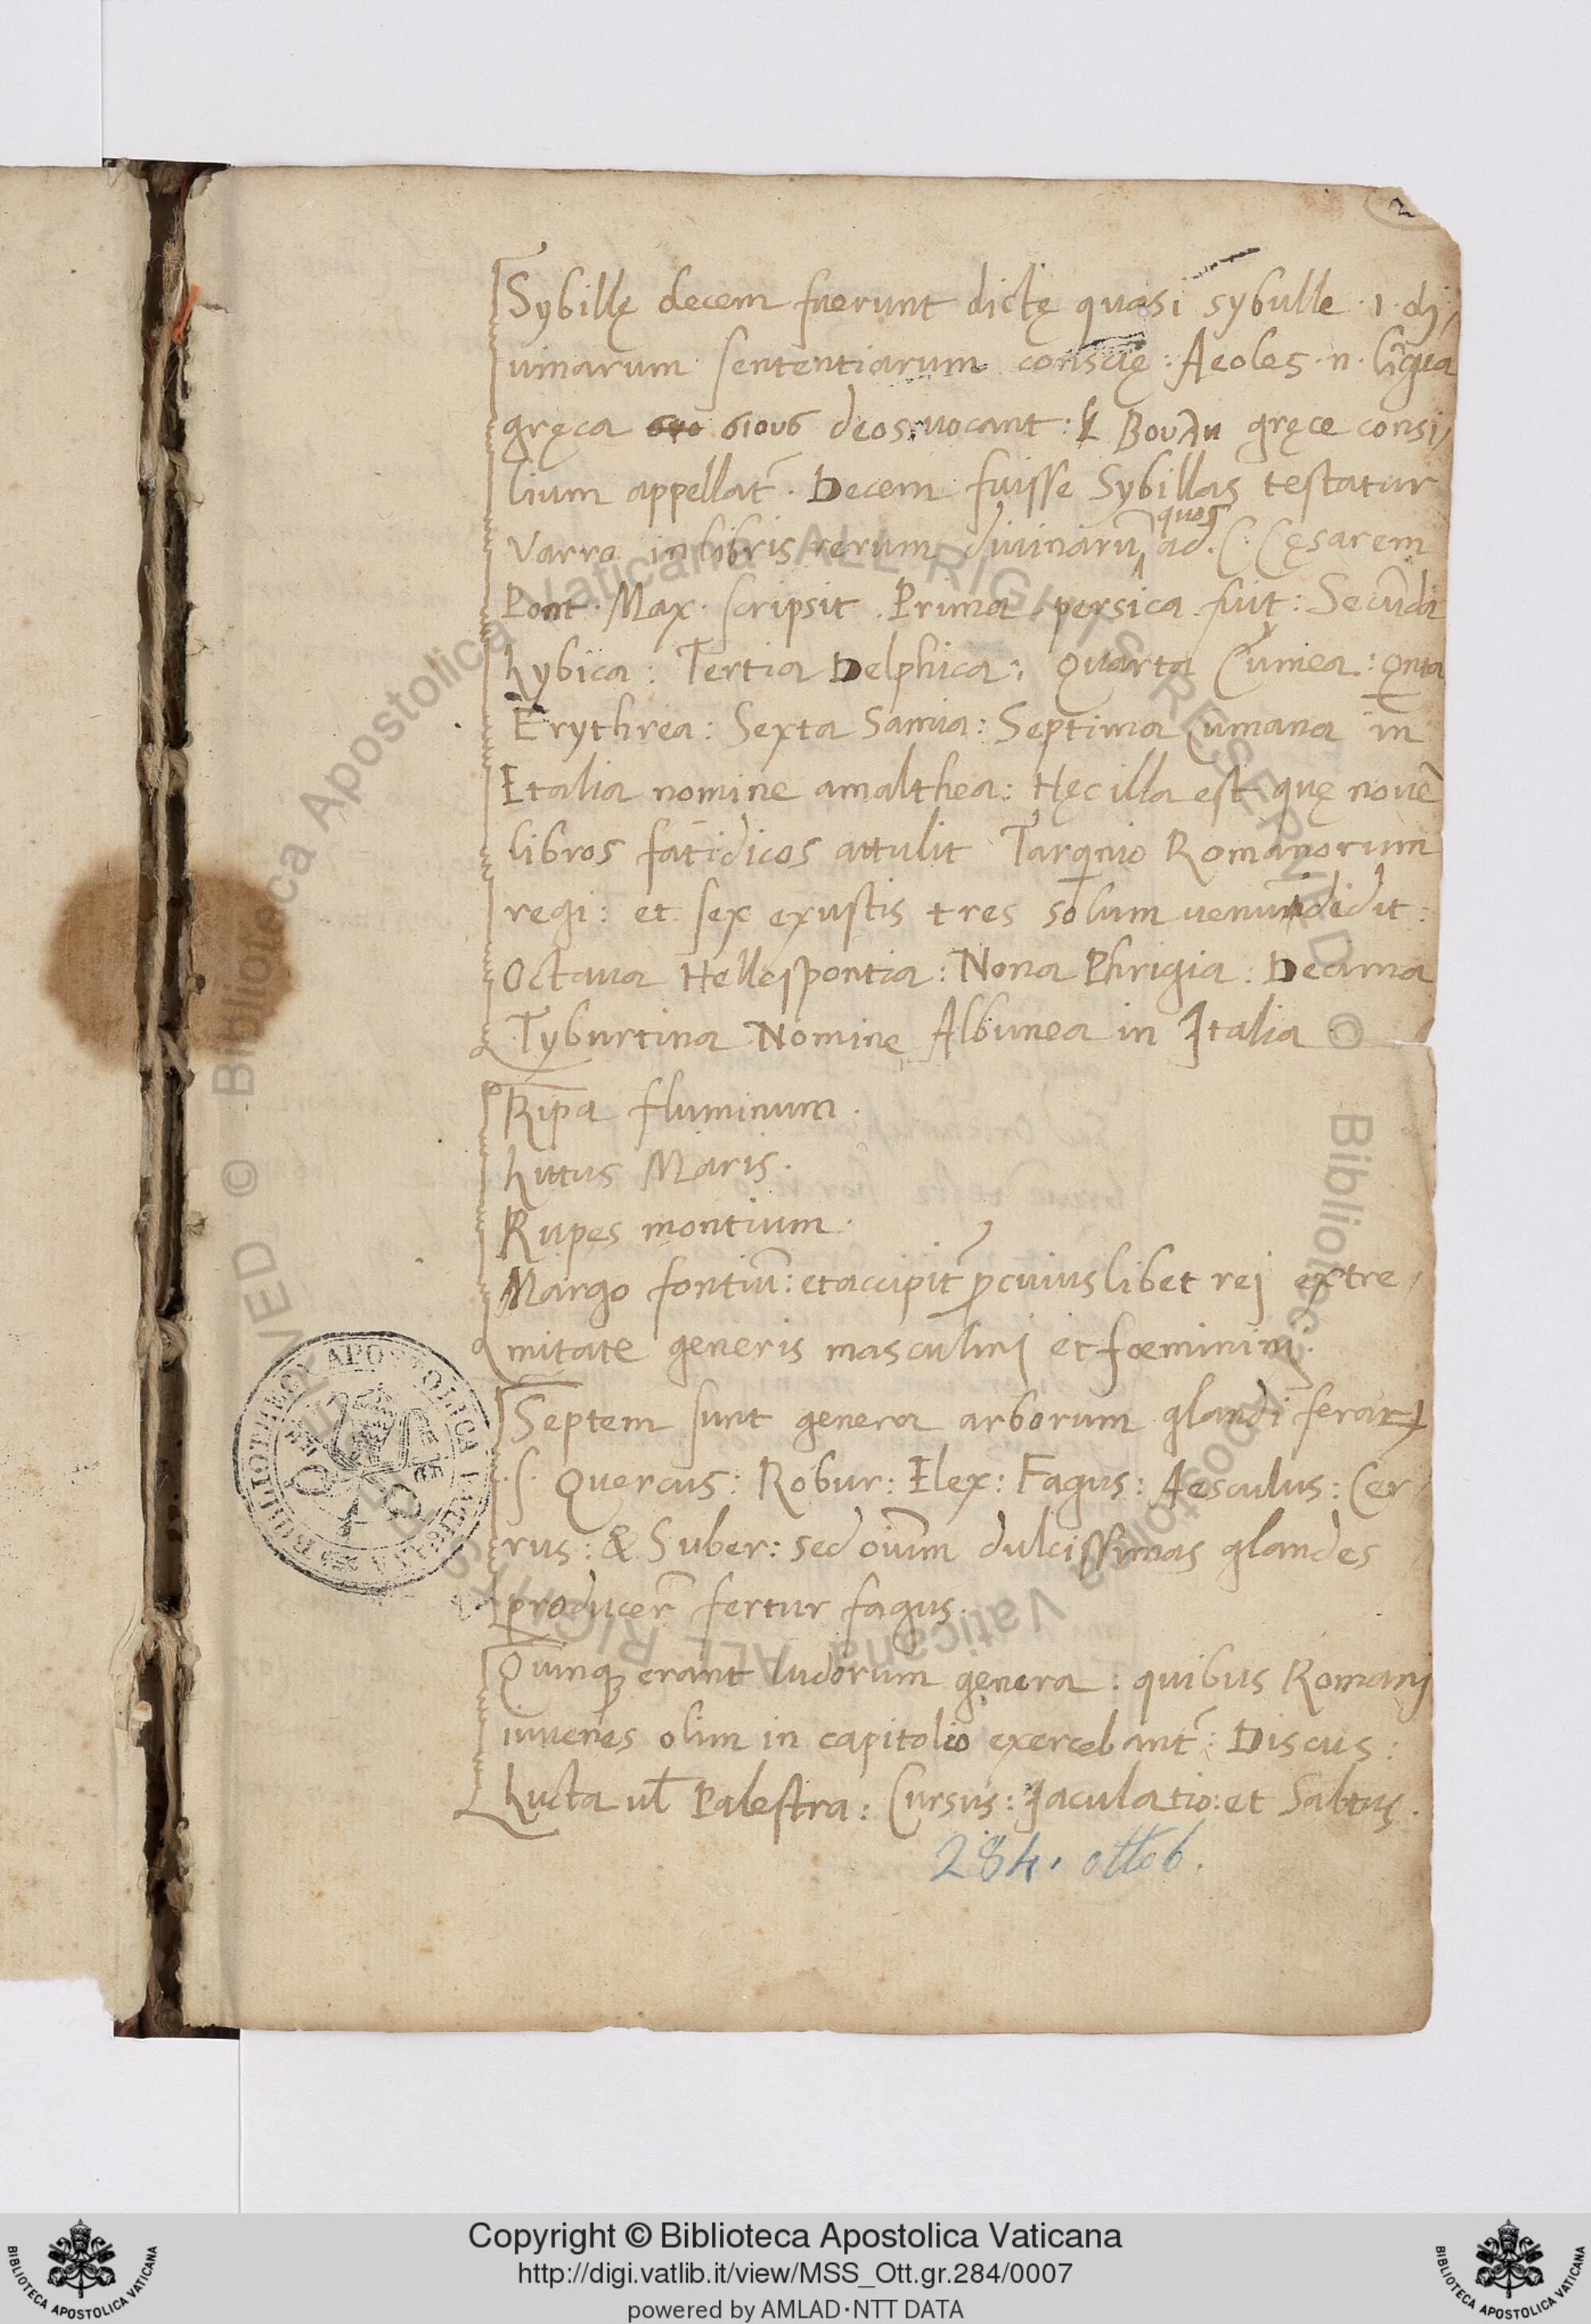 2
Sybillę decem fuerunt dictę quasi sybulle .i. di/
uinarum sententiarum conscię: Aeoles .n. lĩgua
gręca σιους deos uocant: & Βουλη gręce consi/
lium appellat̃. Decem fuisse Sybillas testatur
Varro in libris rerum diuinarũ quos ad .C. Cęsarem
Pont. Max. scripsit. Prima persica fuit: Secũda
Lybica: Tertia Delphica: Quarta Cumea: Qnta
Erythrea: Sexta Samia: Septima Cumana in
Etalia nomine amalthea: Hęc illa est quę nouẽ
libros fatidicos attulit Tarqnio Romanorum
regi: et sex exustis tres solum uenundidit:
Octaua Hellespontia: Nona Phrigia: Decima
Tyburtina Nomine Albunea in Italia.
Ripa fluminum.
Littus Maris.
Rupes montium.
Margo fontiũ: et accipit̃ ꝓ cuiuslibet rej extre/
mitate generis masculinj et fœmininj.
Septem sunt genera arborum glandiferaꝝ
.s. Quercus: Robur: Elex: Fagus: Aesculus: Cer
rus: & Suber: sed oium̃ dulcissimas glandes
producer̃ fertur fagus.
Quinqꝫ erant ludorum genera: quibus Romanj
iuuenes olim in capitolio exercebant̃: Discus:
Lucta ul̃ Palestra: Cursus: Jaculatio: et Saltus.
284. ottob.
Copyright © Biblioteca Apostolica Vaticana
http://digi.vatlib.it/view/MSS_Ott.gr.284/0007
powered by AMLAD·NTT DATA
BIBLIOTECA APOSTOLICA VATICANA
BIBLIOTECA APOSTOLICA VATICANA